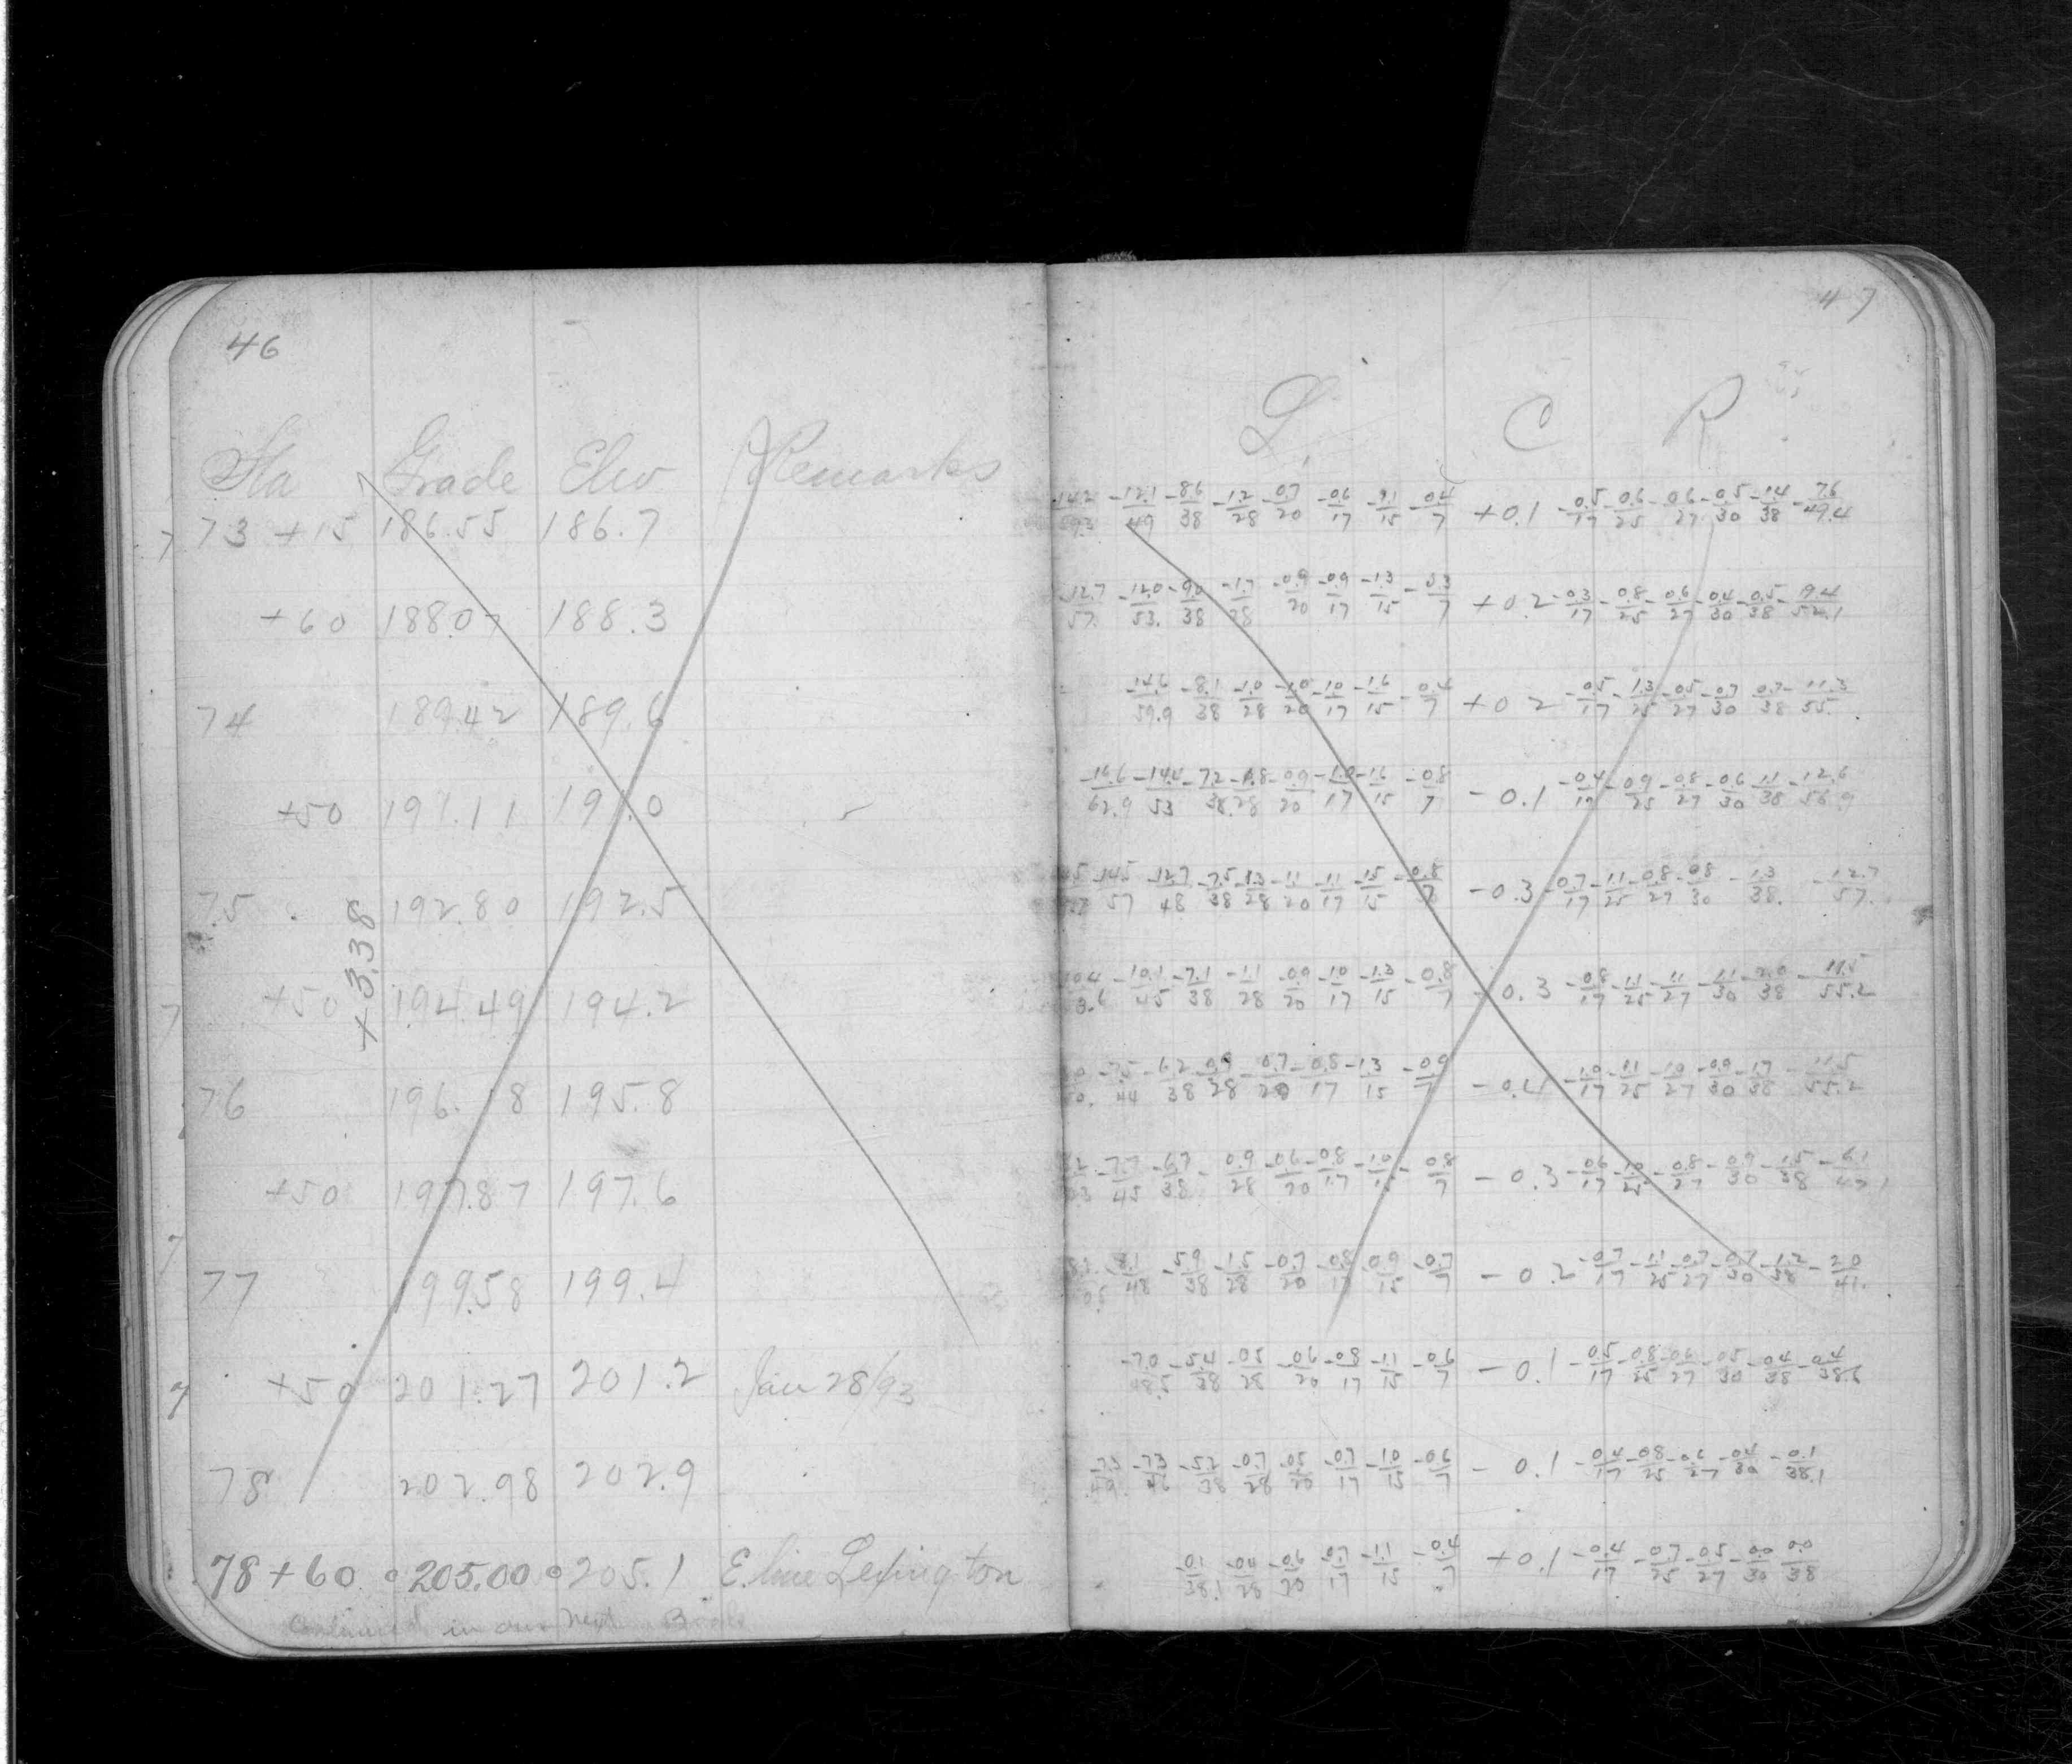 46
Sta Grade Elev Remarks
73 +15 186.55 186.7
+60 188.07 188.3
74 189.42 189.6
+50 191.11 191.0
75 192.80 192.5
+3.38
+50 194.49 194.2
76 196.18 195.8
+50 197.87 197.6
77 199.58 199.4
+50 201.27 201.2 Jan 28/93
78 202.98 202.9
78+60 205.00 205.1 E. line Lexington
Continued in our Next Book
47
L. C R
-12.1/49 -8.6/38 -1.2/28 -0.7/20 -0.6/17 -1.1/15 -0.4/7 +0.1 -0.5/17 -0.6/25 -0.6/27 -0.5/30 -1.4/38 -7.6/49.4
-12.7/57. -12.0/53. -9.0/38 -1.7/28 -0.9/20 -0.9/17 -1.3/15 /7 +0.2 -0.3/17 -0.8/25 -0.6/27 -0.4/30 -0.5/38 -9.4/52.1
-14.6/59.9 -8.1/38 -1.0/28 -1.0/20 -1.0/17 -1.6/15 -0.4/7 +0.2 -0.5/17 -1.3/25 -0.5/27 -0.7/30 0.7/38 -11.3/55.
-16.6/62.9 -14.4/53 -7.2/38 -0.8/28 -0.9/20 -1.0/17 -1.6/15 -0.8/7 -0.1 -0.4/17 -0.9/25 -0.8/27 -0.6/30 1.1/38 -12.6/56.9
-14.5/57 -12.7/48 -7.5/38 -1.3/28 -1.1/20 -1.1/17 -1.5/15 -0.8/7 -0.3 -0.7/17 -1.1/25 -0.8/27 -0.8/30 -1.3/38. -12.7/57.
-10.1/45 -7.1/38 -1.1/28 -0.9/20 -1.0/17 -1.3/15 -0.8/7 -0.3 -0.8/17 -1.1/25 -1.1/27 -1.1/30 -2.0/38 -11.5/55.2
-7.5/44 -6.2/38 -0.9/28 -0.7/20 -0.8/17 -1.3/15 -0.9/7 -0.4 -1.0/17 -1.1/25 -1.0/27 -0.9/30 -1.7/38 -11.5/55.2
-7.7/45 -6.7/38 -0.9/28 -0.6/20 -0.8/17 -1.0/15 -0.8/7 -0.3 -0.6/17 -1.0/25 -0.8/27 -0.9/30 -1.5/38 -6.1/47.1
-8.1/48 -5.9/38 -1.5/28 -0.7/20 -0.8/17 -0.9/15 -0.7/7 -0.2 -0.7/17 -1.1/25 -0.7/27 -0.7/30 -1.2/38 -2.0/41.
-7.0/48.5 -5.4/38 -0.5/28 -0.6/20 -0.8/17 -1.1/15 -0.6/7 -0.1 -0.5/17 -0.8/25 -0.6/27 -0.5/30 -0.4/38 -0.4/38.6
-7.3/49. -7.3/46 -5.2/38 -0.7/28 -0.5/20 -0.7/17 -1.0/15 -0.6/7 -0.1 -0.4/17 -0.8/25 -0.6/27 -0.4/30 -0.1/38.1
-0.1/38.1 -0.4/28 -0.6/20 -0.7/17 -1.1/15 -0.4/7 +0.1 -0.4/17 -0.7/25 -0.5/27 -0.0/30 0.0/38